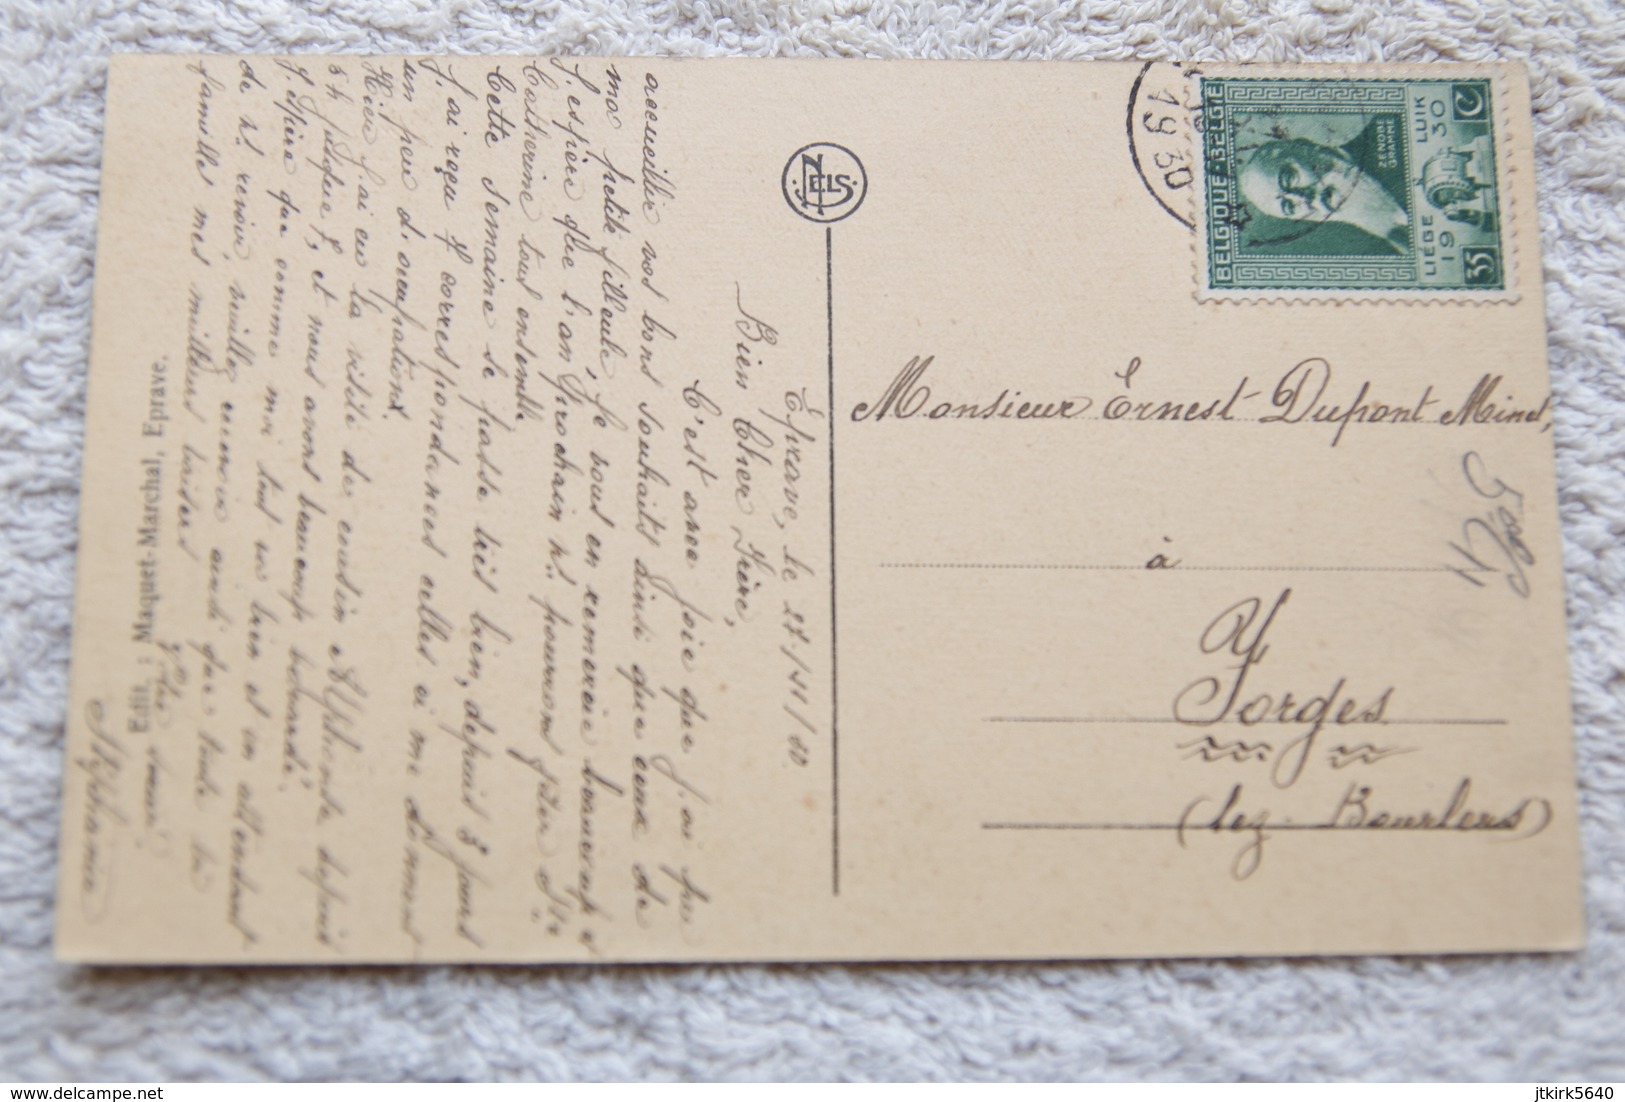 Éprave, le 27/11/30
Bien Cher Frère,
C'est avec joie que j'ai pu
accueillir vos bons souhaits ainsi que ceux de
ma petite filleule, je vous en remercie beaucoup et
j'espère que l'an prochain ns. pourrons fêter Ste
Catherine tous ensemble
Cette semaine se passe très bien, depuis 3 jours
j'ai reçu 7 correspondances celles-ci me donnent
un peu d'occupations.
Hier j'ai eu la visite de cousin Alphonse depuis
5h jusque 9, et nous avons beaucoup bavardé.
J'espère que comme moi tout va bien et en attendant
de vs. revoir, veuillez recevoir ainsi que toute la
famille mes meilleurs baisers
Stéphanie
Edit. : Maquet-Marchal, Eprave.
NELS
1930
BELGIQUE-BELGIE
ZENOBE
GRAMME
LIEGE LUIK
19 30
35 C
Monsieur Ernest Dupont Minet,
à
Forges
(lez-Bourlers)
jtkirk5640